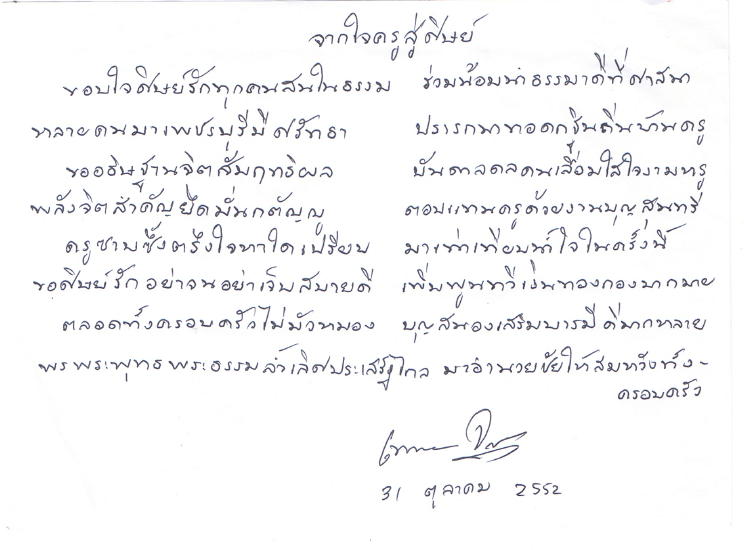 จากใจครูสู่ศิษย์
ขอบใจศิษย์รักทุกคนสนในธรรม ร่วมน้อมนำธรรมาดีที่ศาสนา
หลายคนมาเพชรบุรีมีศรัทธา ปรารถนาทอดกฐินถิ่นบ้านครู
ขออธิษฐานจิตสัมฤทธิผล บันดาลดลคนเลื่อมใสใจงามหรู
พลังจิตสำคัญยึดมั่นกตัญญู ตอบแทนครูด้วยงานบุญสุนทรี
ครูซาบซึ้งตรึงใจหาใดเปรียบ มาเท่าเทียบน้ำใจในครั้งนี้
ขอศิษย์รักอย่าจนอย่าเจ็บสบายดี เพิ่มพูนทวีเงินทองกองมากมาย
ตลอดทั้งครอบครัวไม่มัวหมอง บุญสนองเสริมบารมีดีมากหลาย
พรพระพุทธพระธรรมล้ำเลิศประเสริฐไกล มาอำนวยชัยให้สมหวังทั้ง-
ครอบครัว
31 ตุลาคม 2552